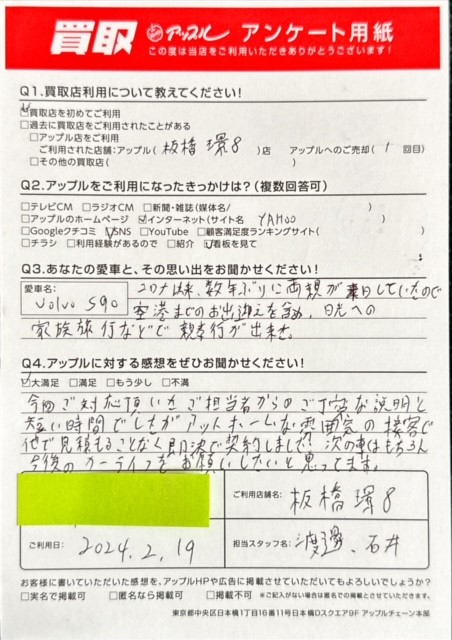 買取 アップル アンケート用紙
この度は当店をご利用いただきありがとうございます!
Q1.買取店利用について教えてください!
☑買取店を初めてご利用
□過去に買取店をご利用されたことがある
□アップル店をご利用
ご利用された店舗:アップル( 板橋環8 )店 アップルへのご売却( 1 回目)
□その他の買取店( )
Q2.アップルをご利用になったきっかけは?(複数回答可)
□テレビCM □ラジオCM □新聞・雑誌(媒体名/ )
□アップルのホームページ ☑インターネット(サイト名 YAHOO )
□Googleクチコミ ☑SNS □YouTube □顧客満足度ランキングサイト( )
□チラシ □利用経験があるので □紹介 ☑看板を見て
Q3.あなたの愛車と、その思い出をお聞かせください!
愛車名:
Volvo S90
コロナ以来、数年ぶりに両親が来日していたので
空港までのお出迎えを含め、日光への
家族旅行などで親孝行が出来た。
Q4.アップルに対する感想をぜひお聞かせください!
☑大満足 □満足 □もう少し □不満
今回ご対応頂いたご担当者からのご丁寧な説明と
短い時間でしたがアットホームな雰囲気の接客で
他で見積ることなく即決で契約しました! 次の車はもちろん
今後のカーライフをお願いしたいと思ってます。
ご利用店舗名:
板橋環8
ご利用日: 2024.2.19
担当スタッフ名: 渡邊、石井
お客様に書いていただいた感想を、アップルHPや広告に掲載させていただいてもよろしいでしょうか?
□実名で掲載可 □匿名なら掲載可 □掲載不可 ※ご記入がない場合は匿名での掲載とさせていただきます。
東京都中央区日本橋1丁目16番11号日本橋Dスクエア9F アップルチェーン本部